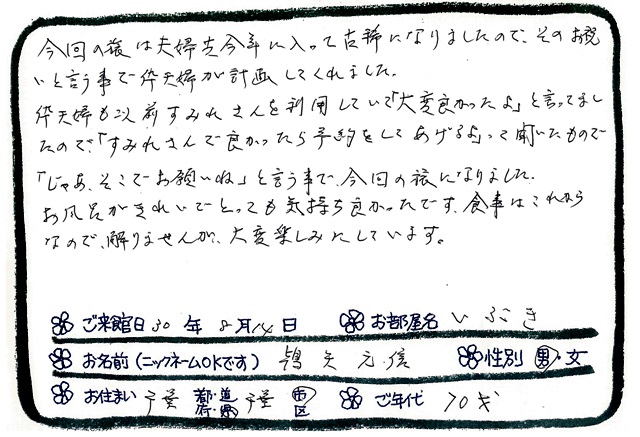 今回の旅は夫婦共今年に入って古稀になりましたので、そのお祝
いと言う事で伜夫婦が計画してくれました。
伜夫婦も以前すみれさんを利用していて「大変良かったよ」と言ってまし
たので、「すみれさんで良かったら予約をしてあげるよ」って聞いたもので
「じゃあ、そこでお願いね」と言う事で、今回の旅になりました。
お風呂がきれいでとっても気持ち良かったです。食事はこれから
なので、解りませんが、大変楽しみにしています。
ご来館日 30 年 8 月 14 日 お部屋名 いぶき
お名前(ニックネームOKです) 矢元信 性別 男・女
お住まい 千葉 都・道 府・県 千葉 市 区 ご年代 70才